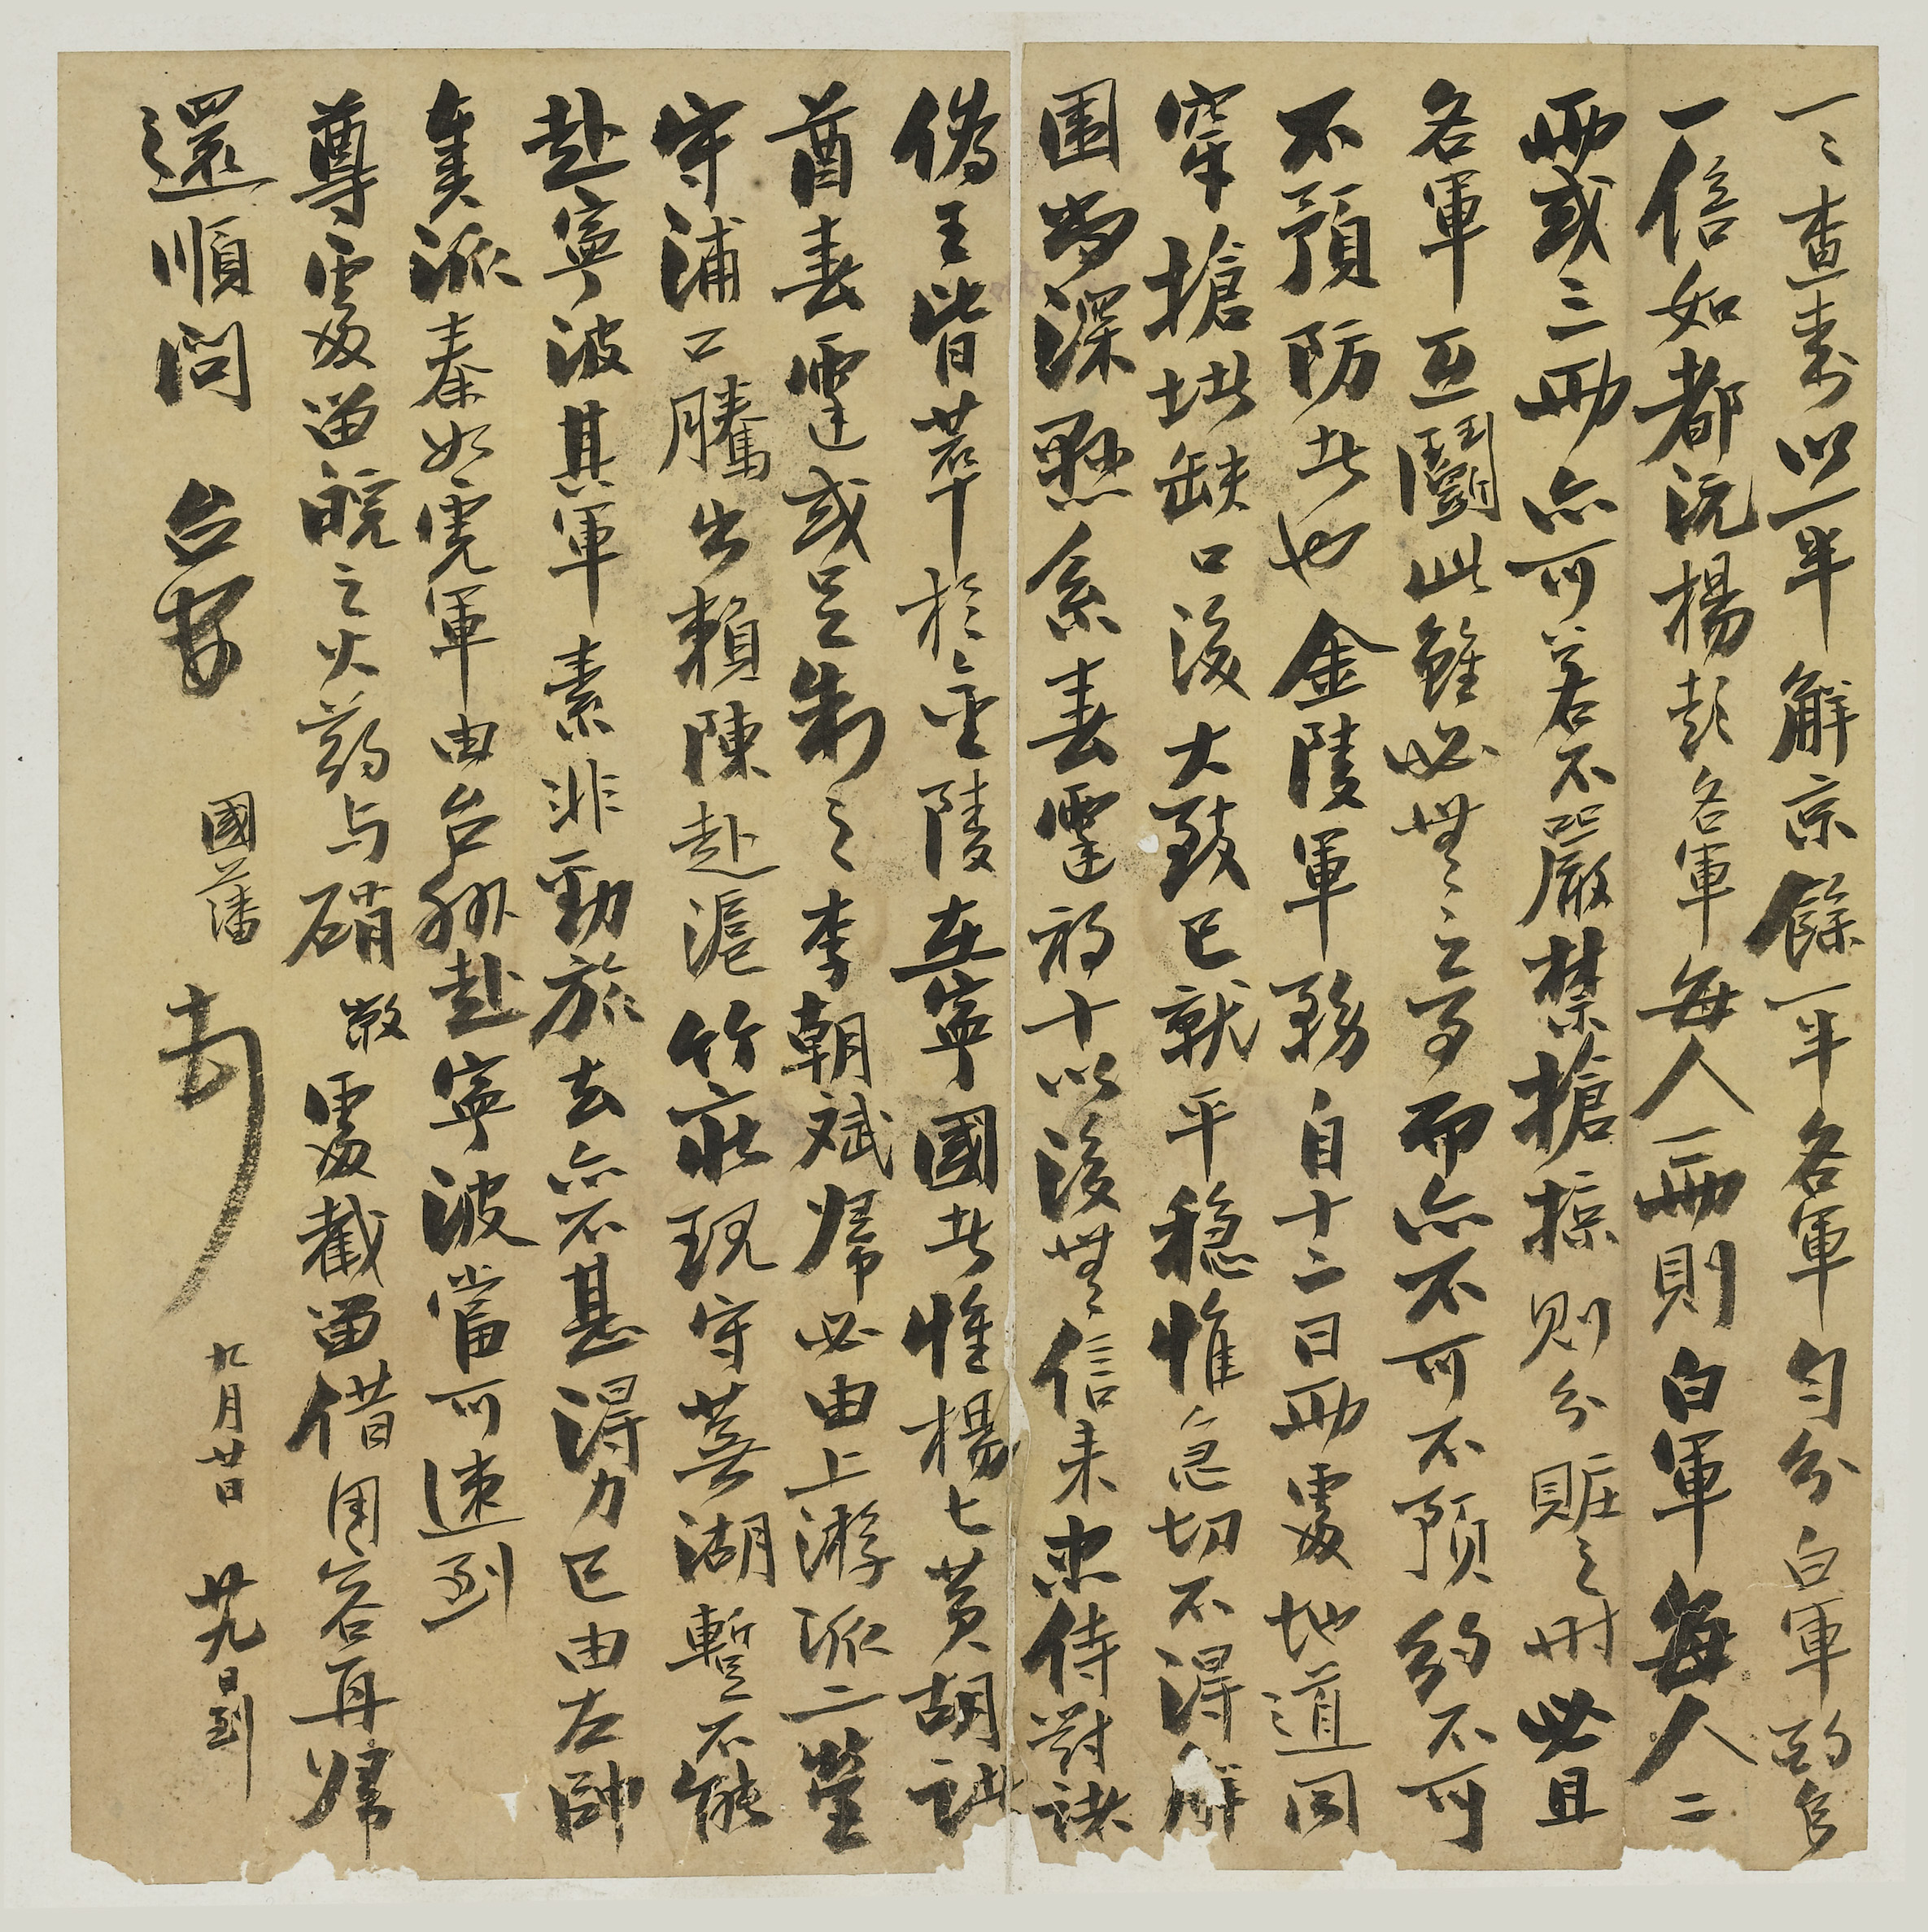 一一查封以一半解京餘一半各軍勻分白軍酌多
一信如都沅楊彭各軍每人一兩則白軍每人二
兩或三兩亦可若不嚴禁搶掠則分賍之時必且
各軍互鬪此雖必無之事而亦不可不預約不可
不預防者也金陵軍務自十二日兩處地道同
穿搶堵缺口後大致已就平穩惟急切不得解
圍為深懸系春霆初十以後無信來忠侍對諸
偽王皆萃於金陵在寧國者惟楊七黃胡諸
酋春霆或足制之李朝斌歸必由上游派二營
守浦口騰出賴陳赴滬竹莊現守蕪湖暫不能
赴寧波其軍素非勁旅去亦不甚得力已由左帥
奏派秦如虎軍由台州赴寧波當可速到
尊處留皖之火药与硝敝處截留借用容再歸
還順問
台安
國藩頓首
九月廿日
廿九日到